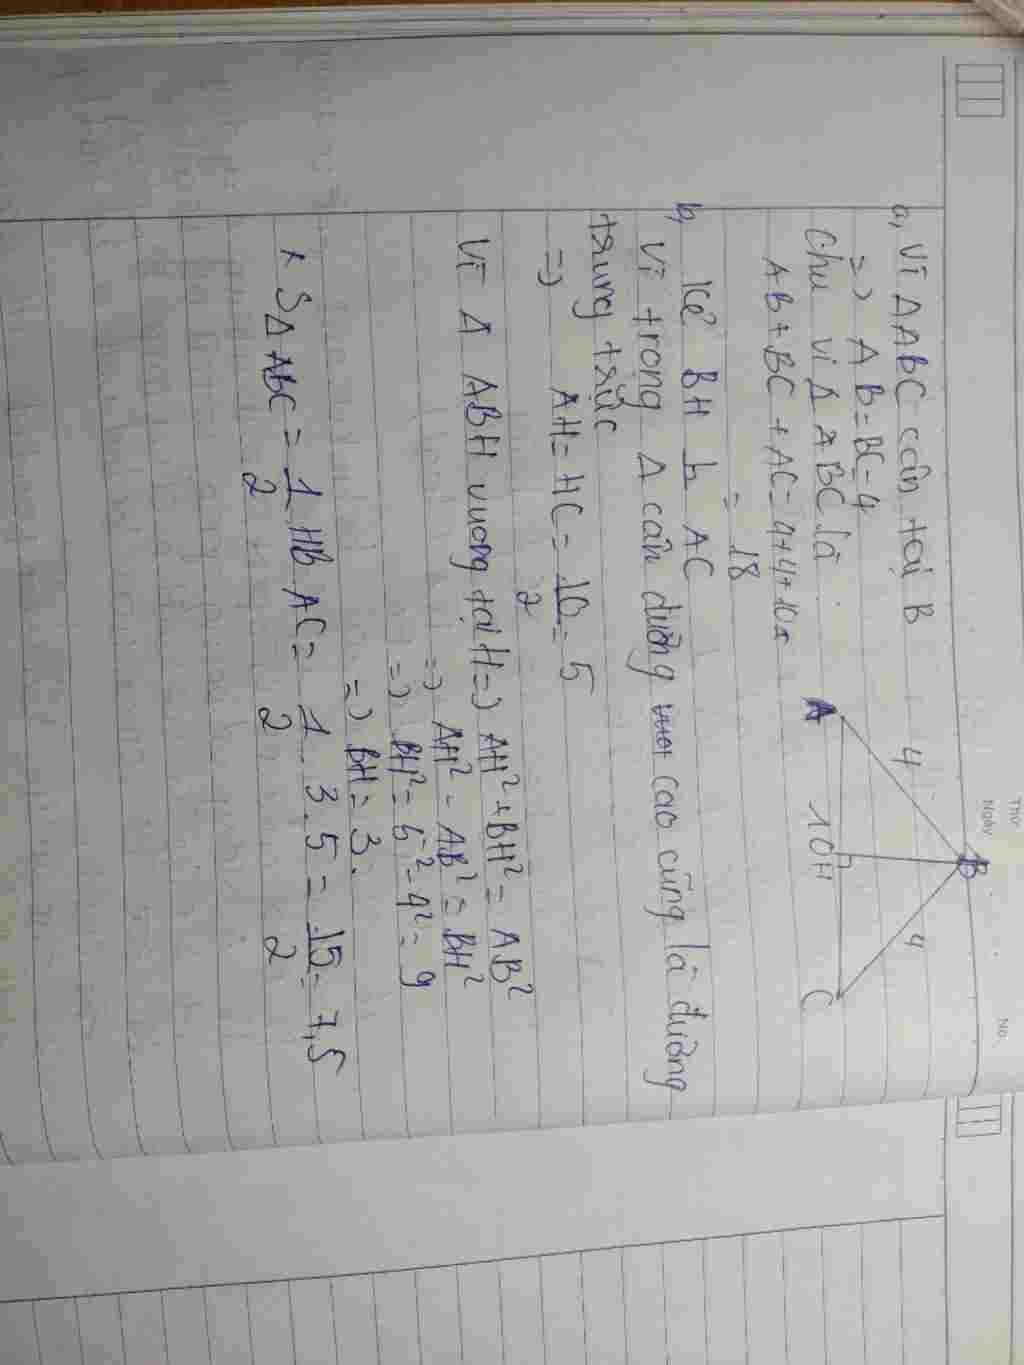 Thứ
Ngày
No.
a, Vì Δ ABC cân tại B
=> AB = BC = 4
Chu vi Δ ABC là
AB + BC + AC = 4+4+10
= 18
4
B
4
A
10
H
C
b, Kẻ BH ⊥ AC
Vì trong Δ cân đường cao cũng là đường
trung trực
=> AH = HC = 10/2 = 5
Vì Δ ABH vuông tại H => AH² + BH² = AB²
=> AH² - AB² = BH²
=> BH² = 5² - 4² = 9
=> BH = 3.
* SΔ ABC = 1/2 HB AC = 1/2 . 3 . 5 = 15/2 = 7,5